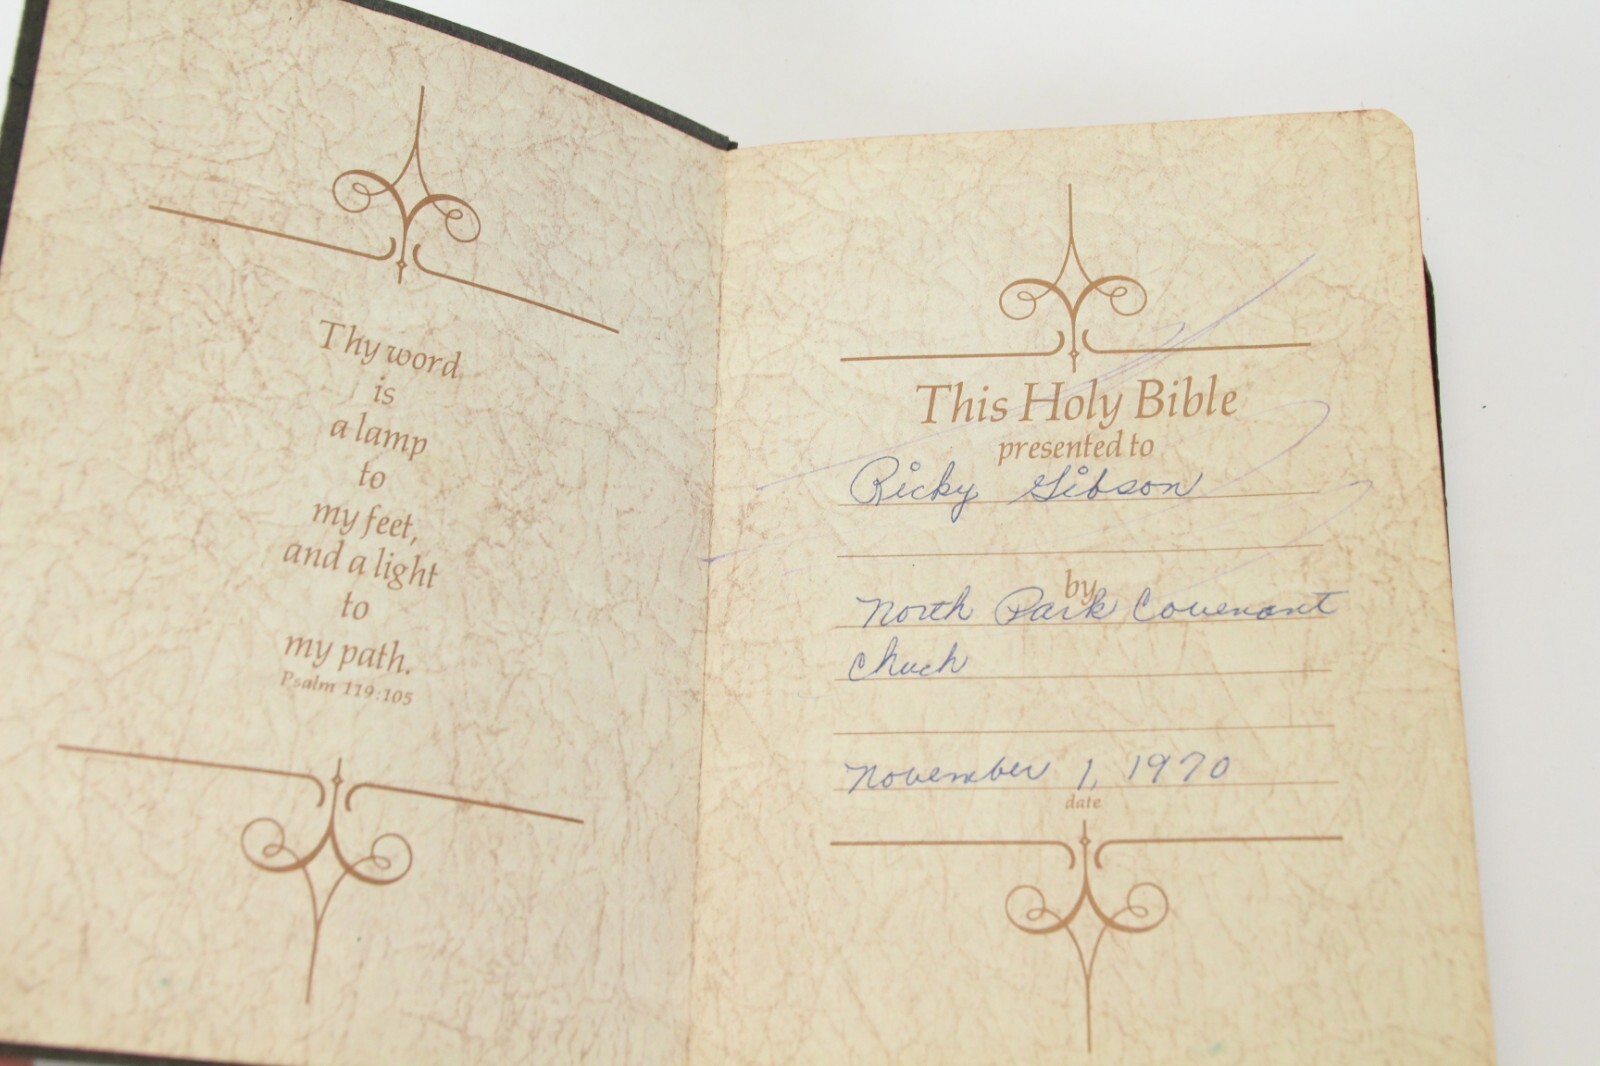 Thy word
is
a lamp
to
my feet,
and a light
to
my path.
Psalm 119:105
This Holy Bible
presented to
Ricky Gibson
by
North Park Covenant
Chuch
November 1, 1970
date